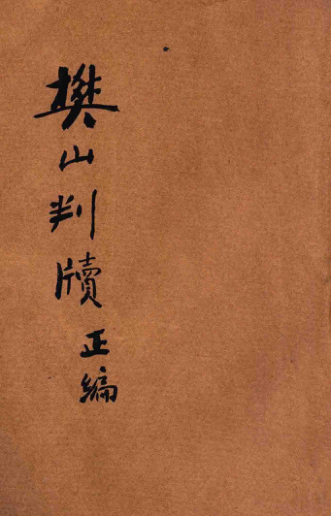 樊山判牘正編